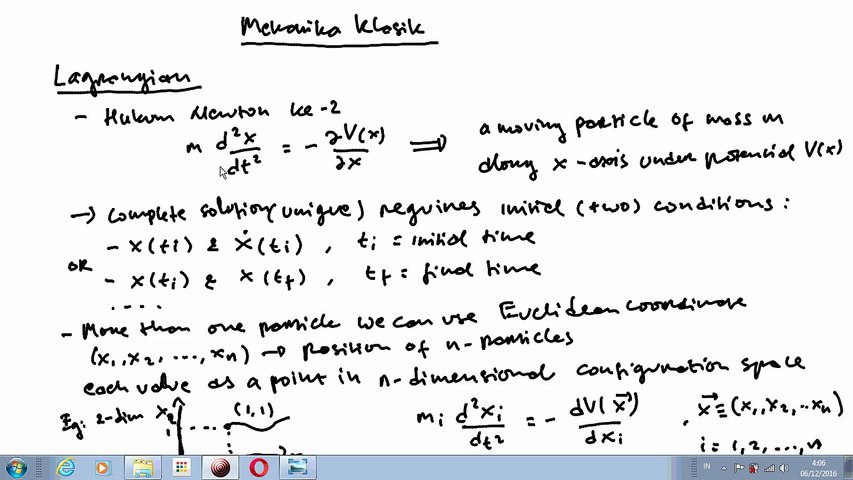 Mekanika Klasik
Lagrangian
- Hukum Newton ke-2
m d²x/dt² = - ∂V(x)/∂x ⟹ a moving particle of mass m
along x-axis under potential V(x)
→ Complete solution (unique) requires initial (two) conditions :
- x(ti) & ẋ(ti) , ti = initial time
OR
- x(ti) & x(tf) , tf = final time
. . . .
- More than one particle we can use Euclidean coordinate
(x₁, x₂, ..., xn) → position of n-particles
each value as a point in n-dimensional configuration space
Eg: 2-dim x₂ (1,1)
1
mi d²xi/dt² = - dV(x⃗)/dxi , x⃗ ≡ (x₁, x₂, ..xn)
i = 1, 2, ..., n
IN
4:06
06/12/2016